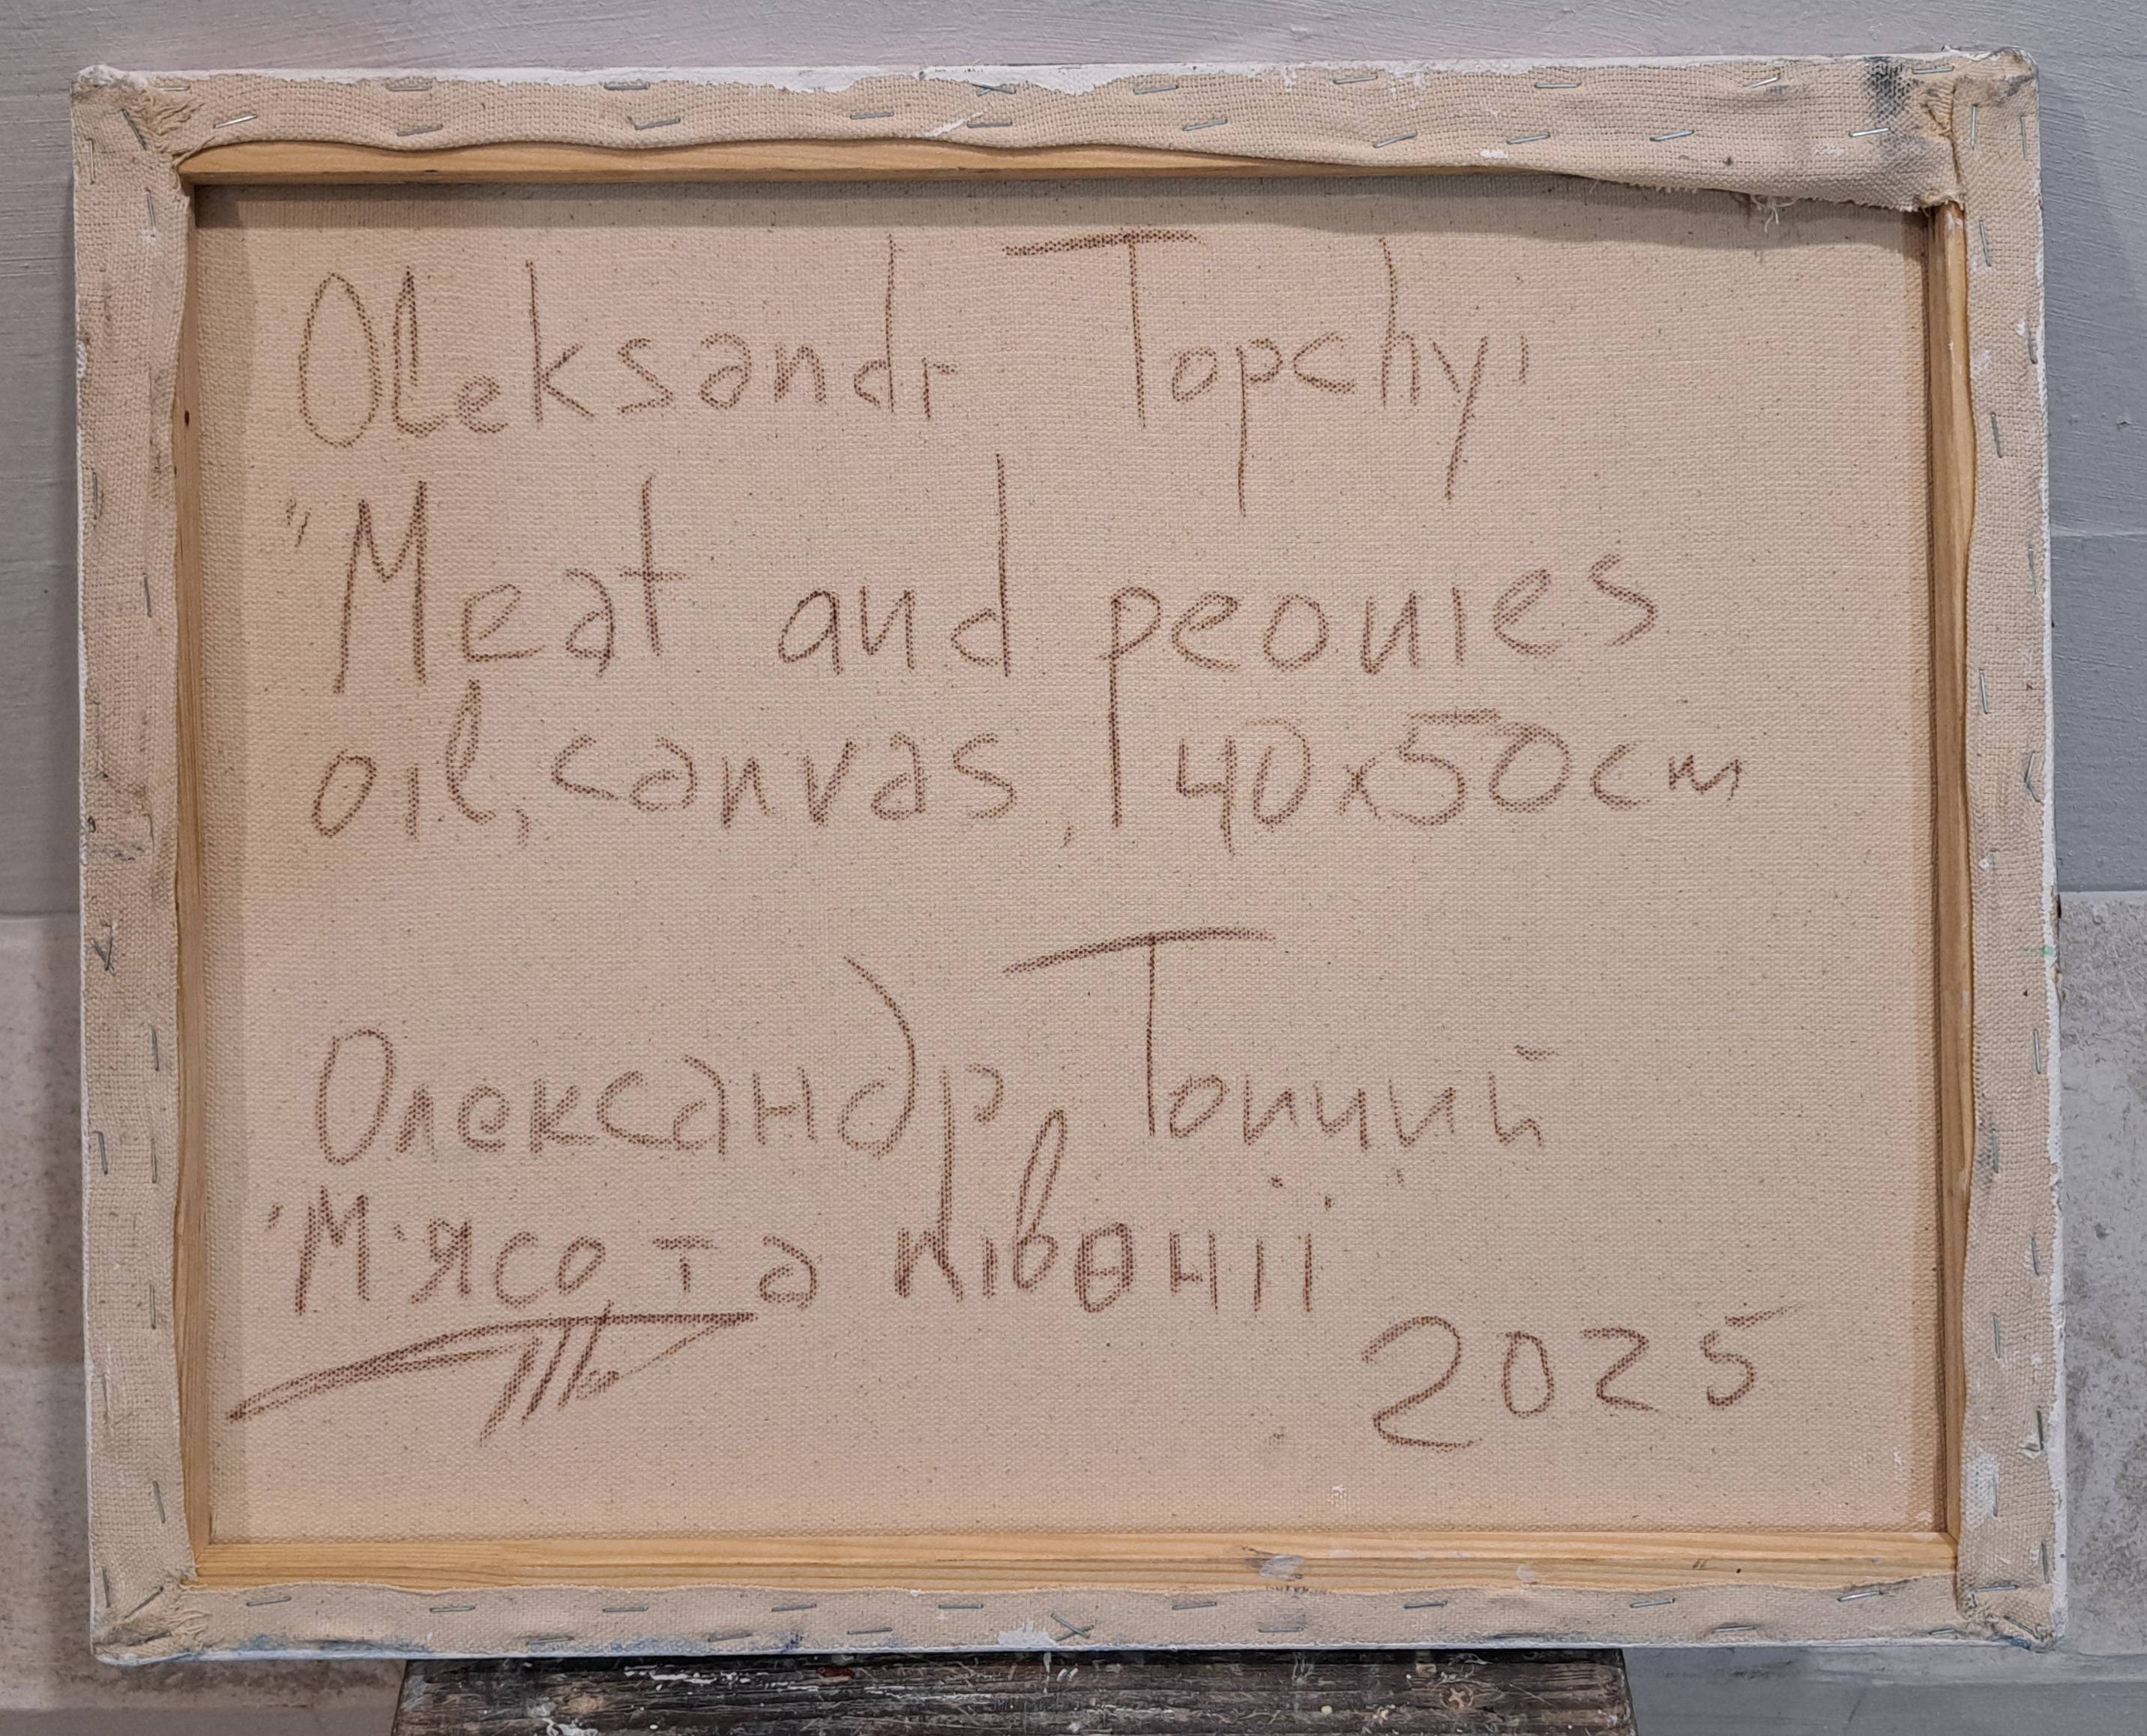 Oleksandr Topchyi
"Meat and peonies
oil, canvas, 40x50cm
Олександр Топчий
"М'ясо та півонії"
2025